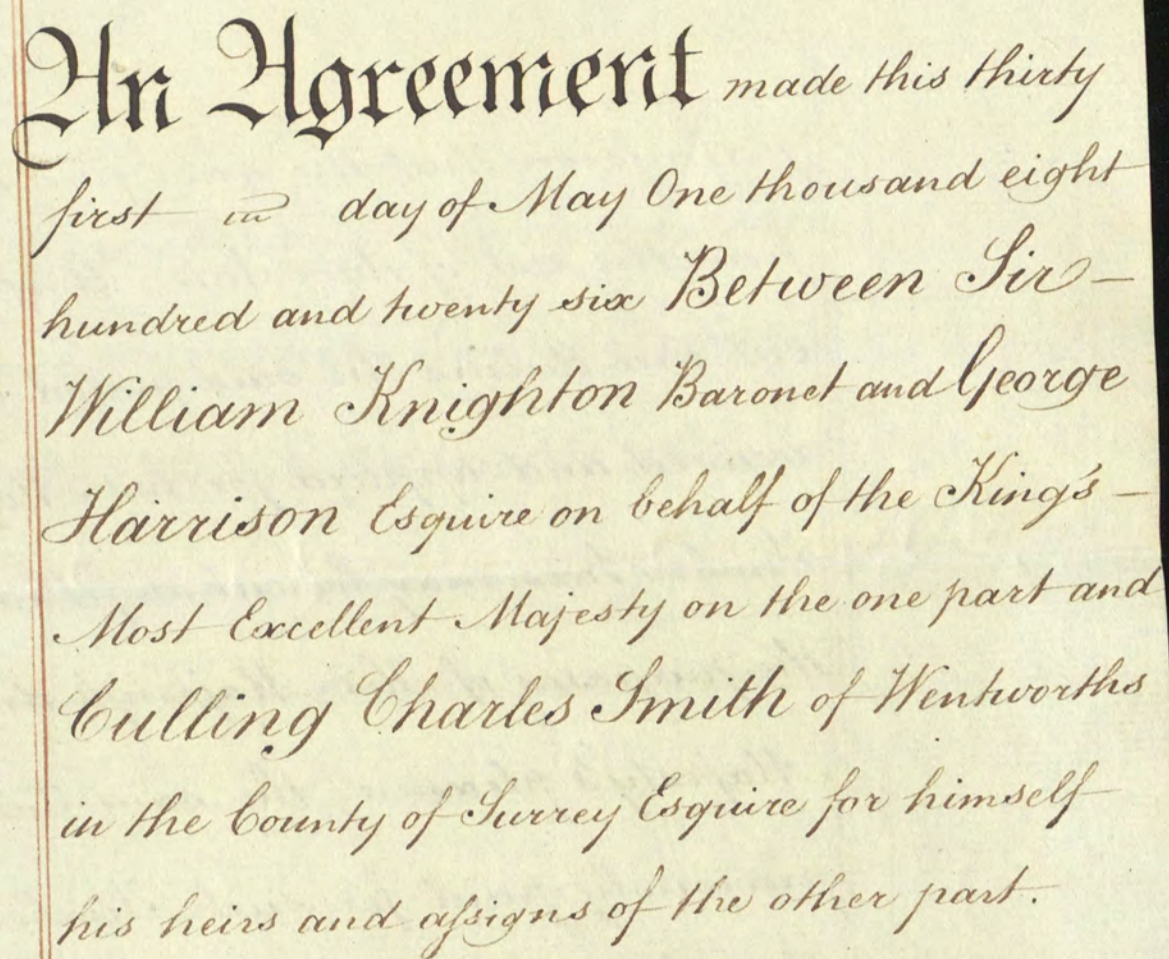 An Agreement made this thirty
first day of May One thousand eight
hundred and twenty six Between Sir –
William Knighton Baronet and George
Harrison Esquire on behalf of the King's –
Most Excellent Majesty on the one part and
Culling Charles Smith of Wentworths
in the County of Surrey Esquire for himself
his heirs and aſsigns of the other part.